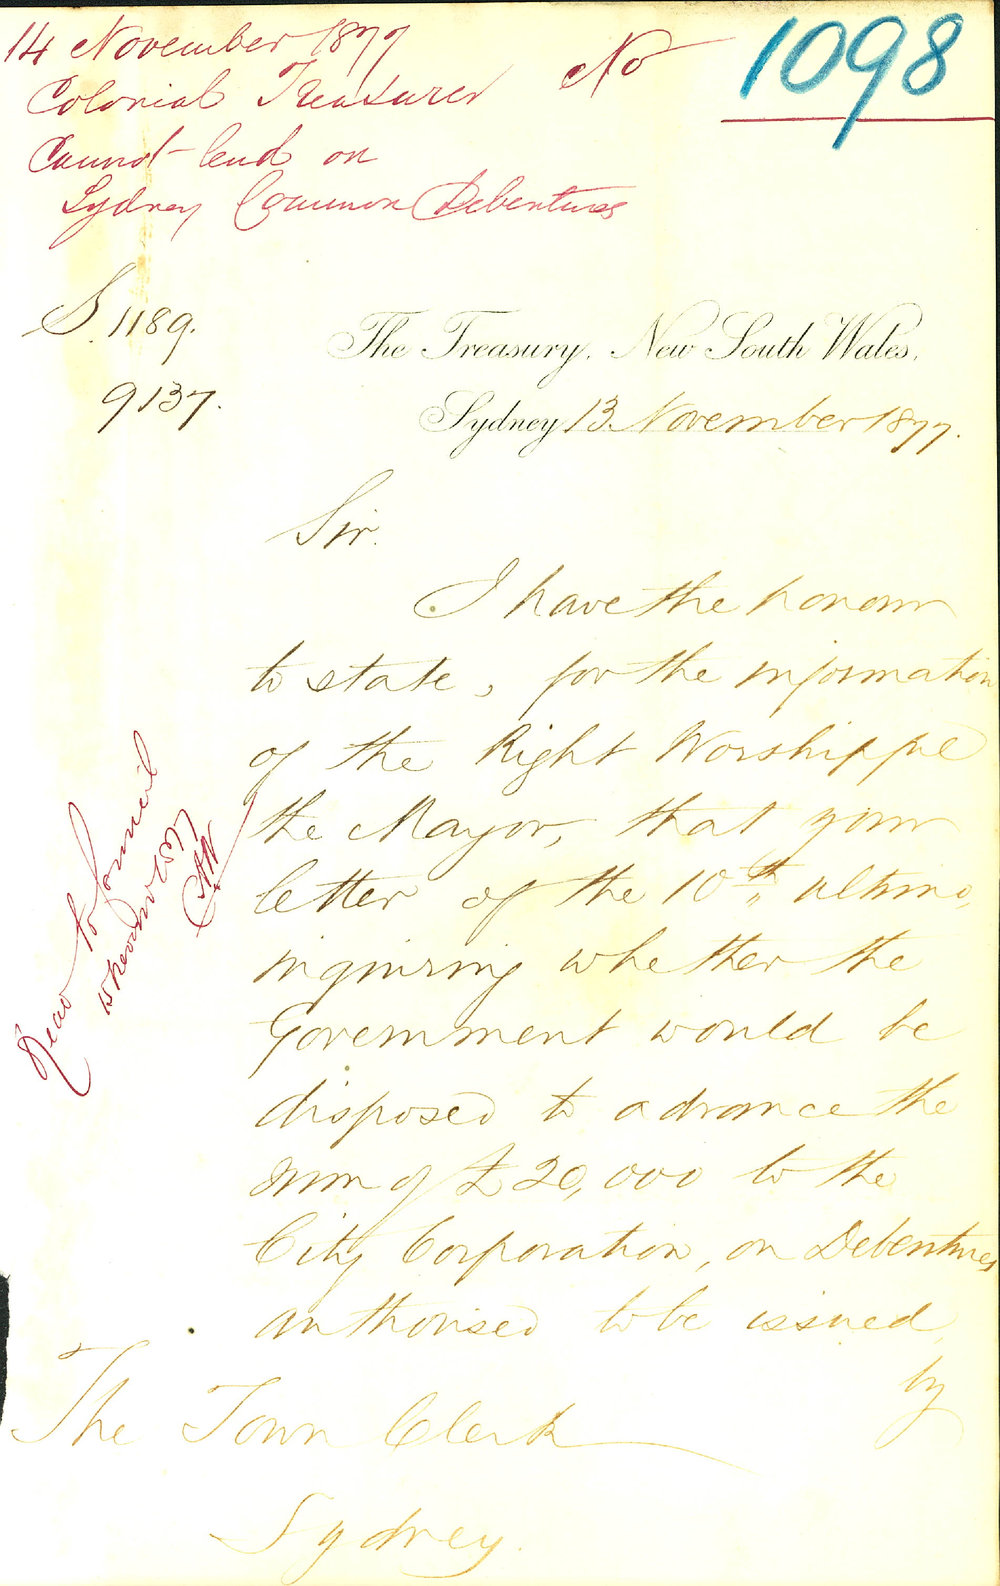 14 November 1877
Colonial Treasurer
Cannot lend on
Sydney Common Debentures
No 1098
S. 1189.
9137.
The Treasury, New South Wales,
Sydney 13 November 1877.
Sir.
I have the honour
to state, for the information
of the Right Worshipful
the Mayor, that your
letter of the 10th ultimo,
inquiring whether the
Government would be
disposed to advance the
sum of £20,000 to the
City Corporation, on Debentures
authorised to be issued
by
The Town Clerk
Sydney.
Read to Council